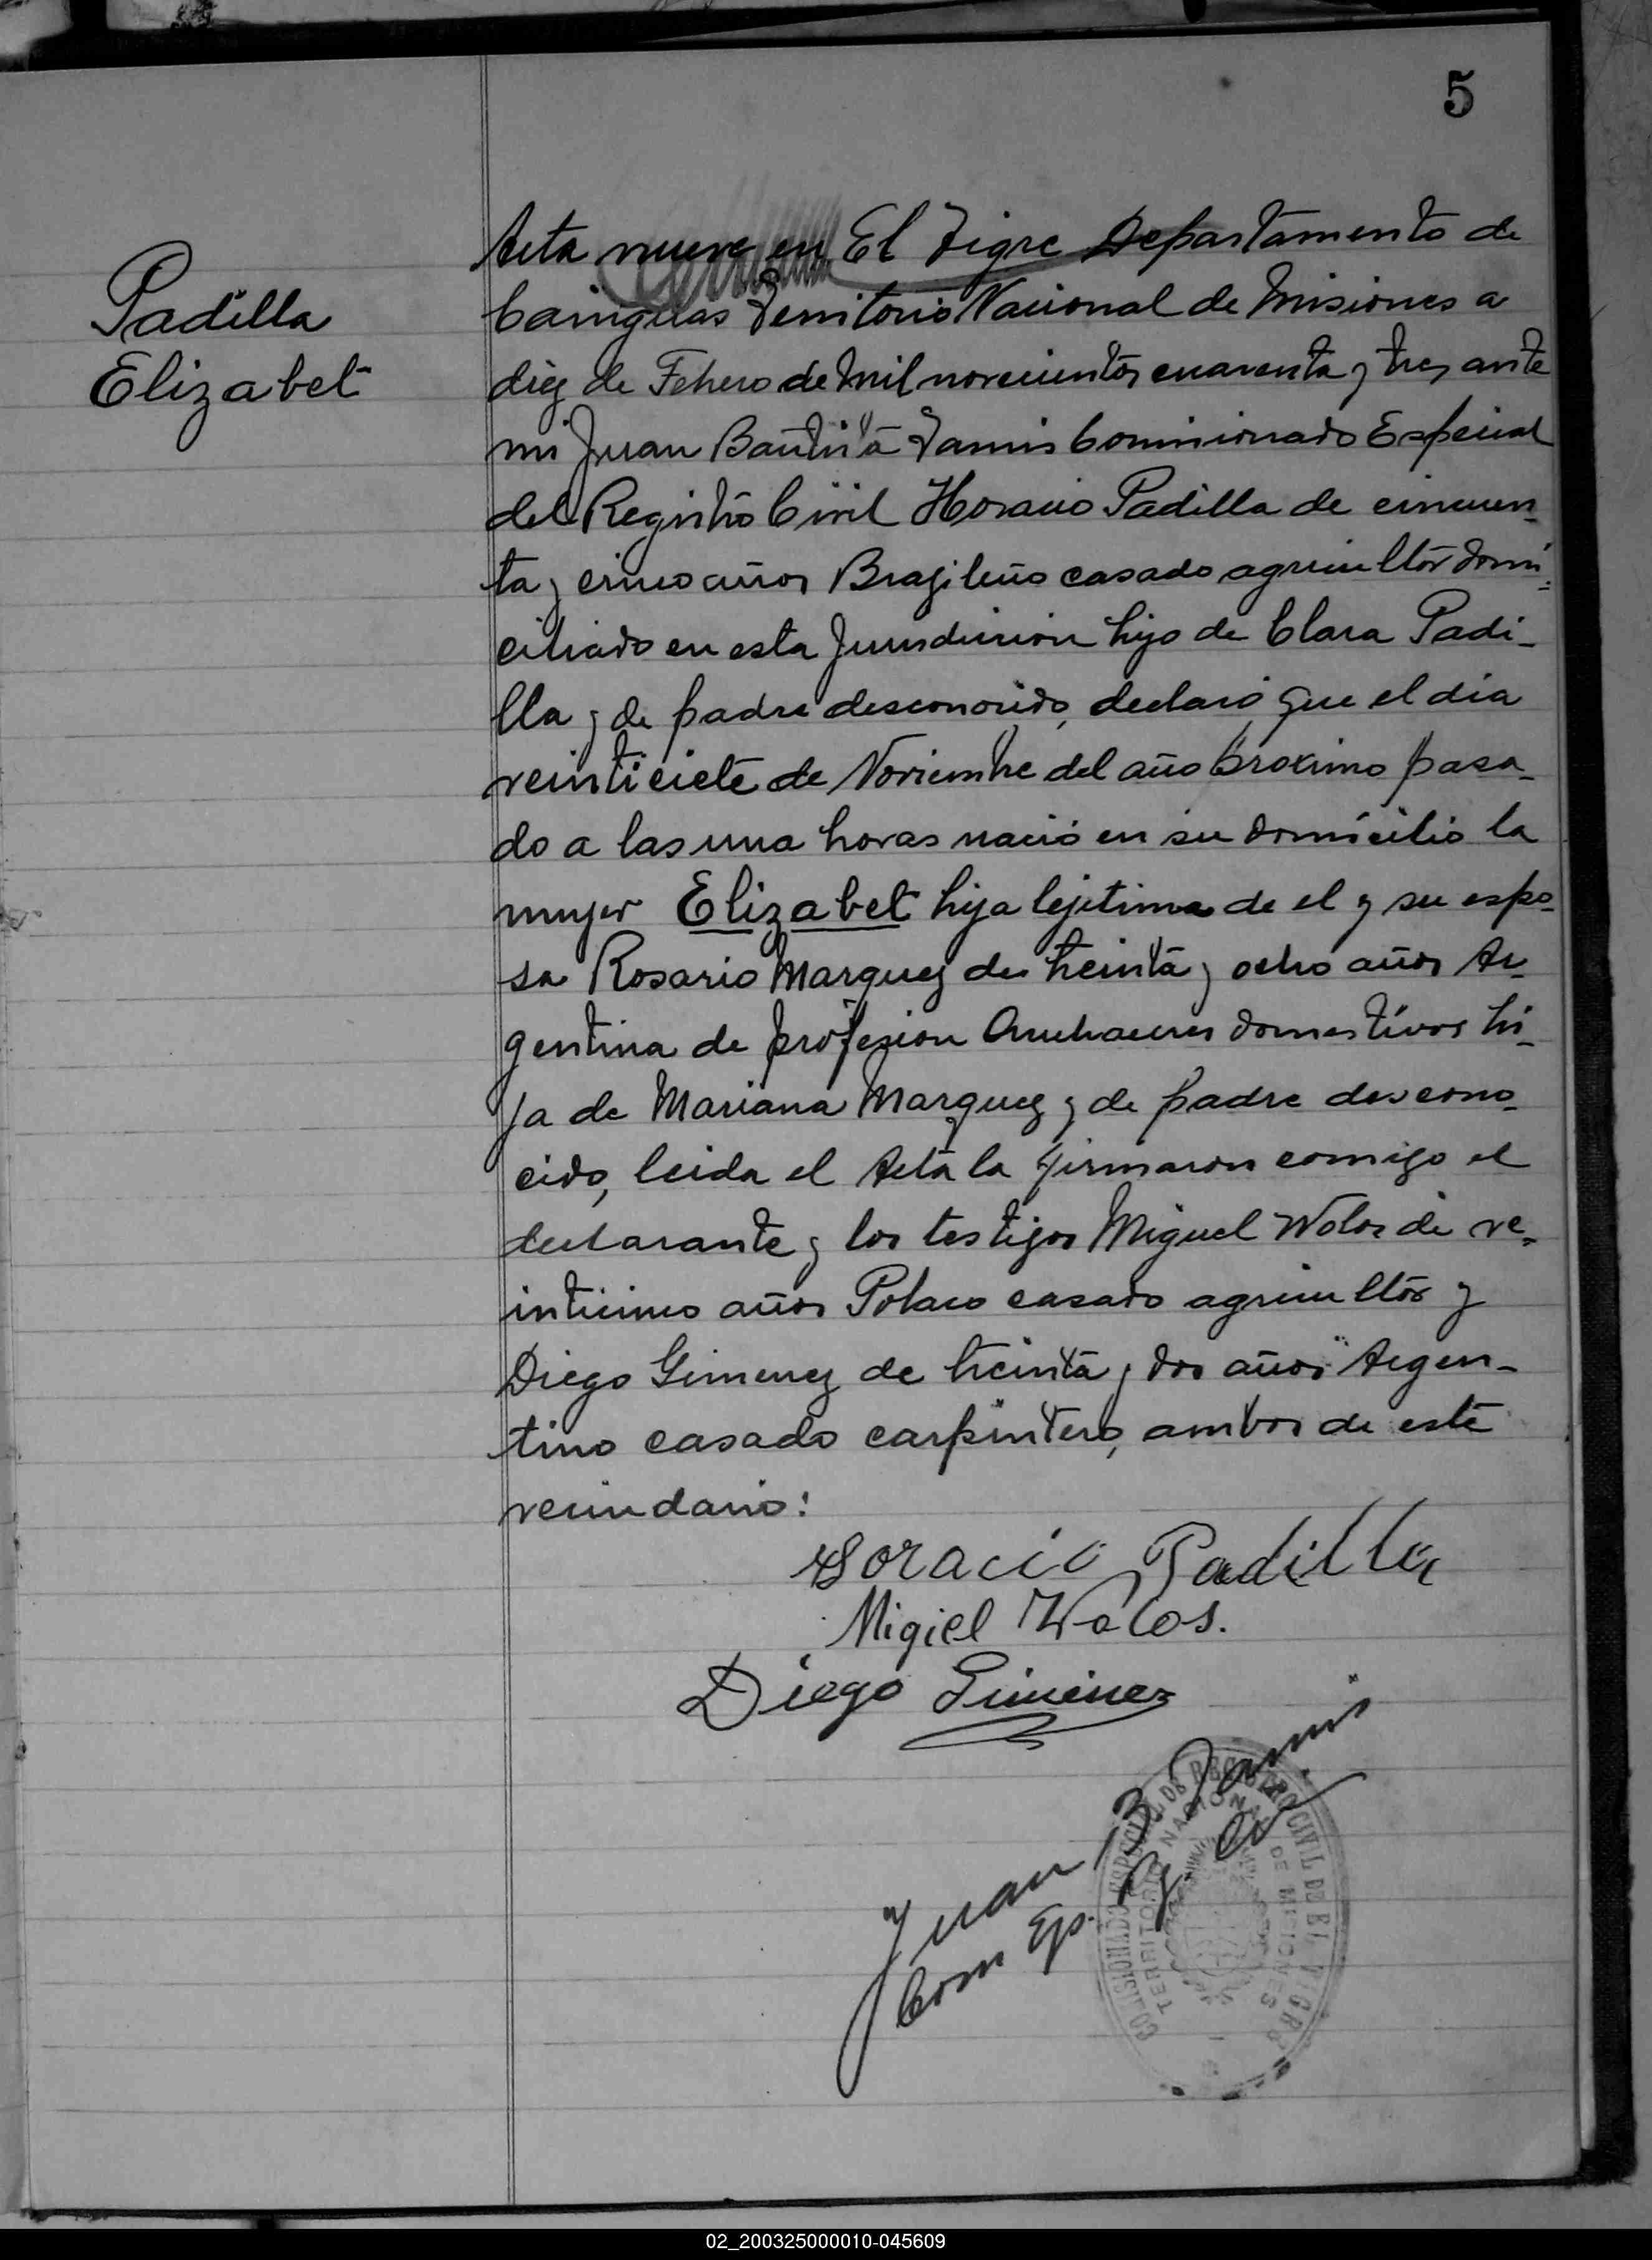 5
Padilla
Elizabet
Acta nueve en El Tigre Departamento de
Cainguas Territorio Nacional de Misiones a
diez de Febrero de mil novecientos cuarenta y tres ante
mi Juan Bautista Tamis Comisionado Especial
del Registro Civil Horacio Padilla de cincuen-
ta y cinco años Brazileño casado agricultor domi-
ciliado en esta Jurisdiccion hijo de Clara Padi-
lla y de padre desconocido, declaró que el dia
veinticiete de Noviembre del año proximo pasa-
do a las una horas nació en su domicilio la
mujer Elizabet hija lejitima de el y su espo-
sa Rosario Marquez de treinta y ocho años Ar-
gentina de profesion Quehaceres domesticos hi-
ja de Mariana Marquez y de padre descono-
cido, leida el Acta la firmaron comigo el
declarante y los testigos Miguel Wolos de ve-
inticinco años Polaco casado agricultor y
Diego Gimenez de treinta y dos años Argen-
tino casado carpintero, ambos de este
vecindario:
Horacio Padilla
Migiel Wolos.
Diego Gimenez
Juan B Tamis
Com Esp. R. C.
COMISIONADO ESPECIAL DE REGISTRO CIVIL DE EL TIGRE
TERRITORIO NACIONAL DE MISIONES
02_200325000010-045609